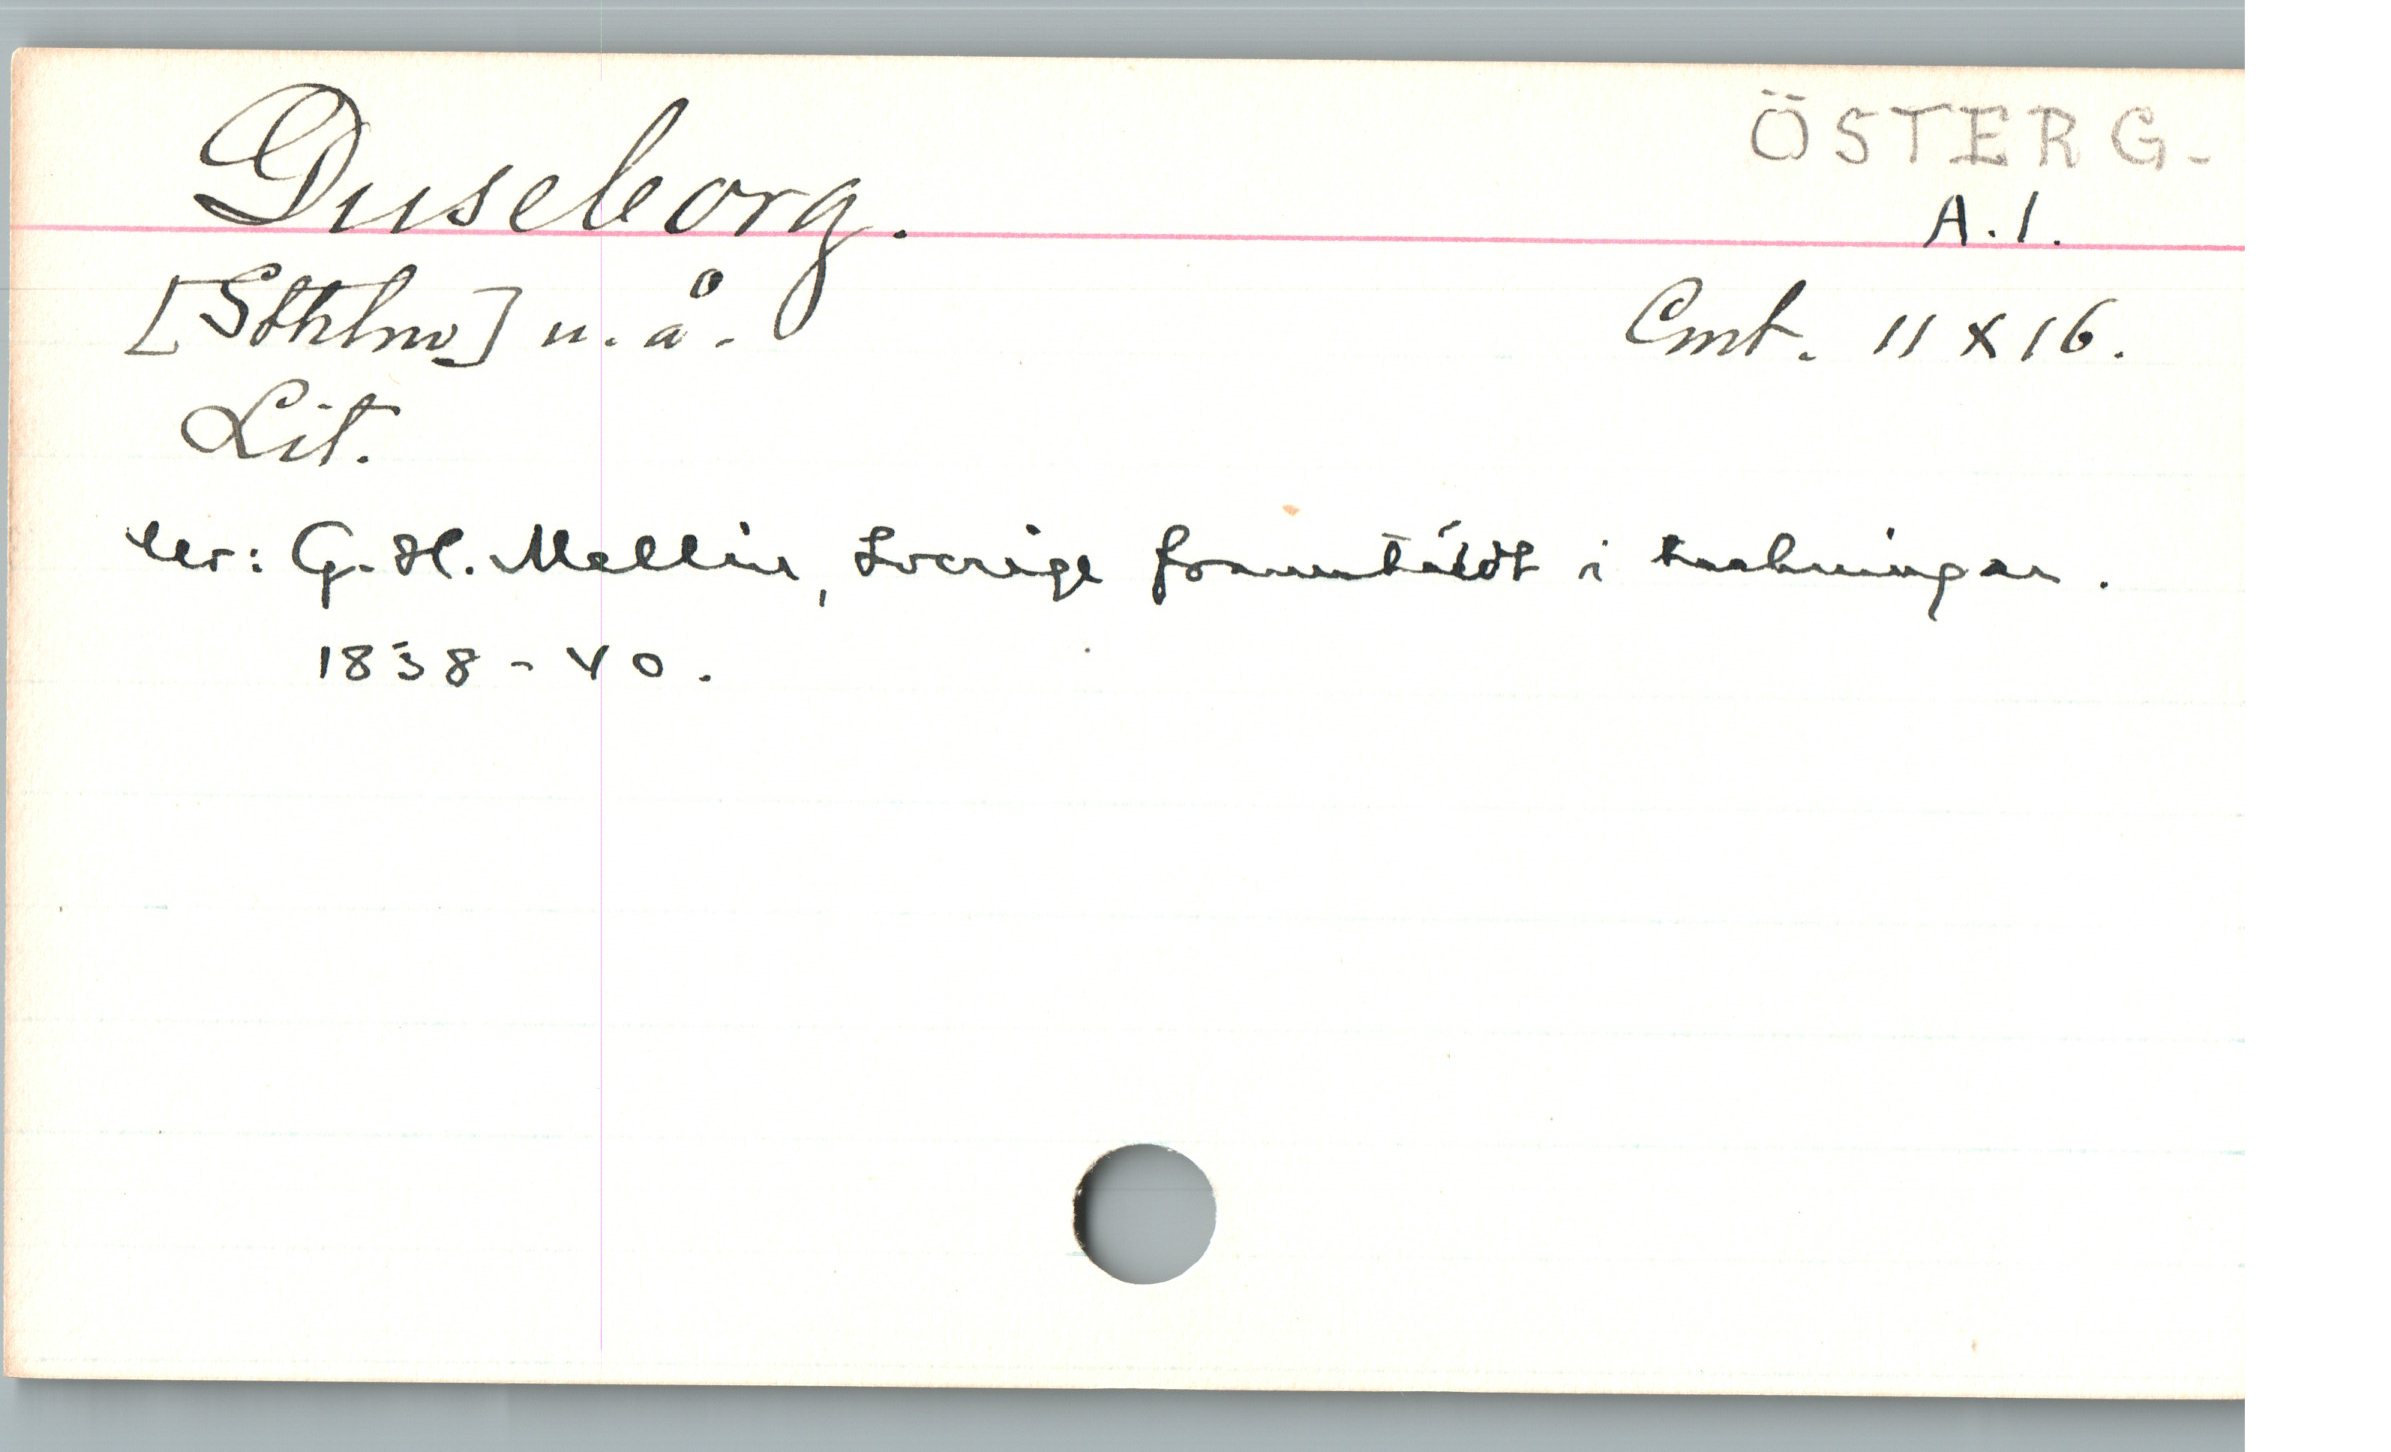 ÖSTERG.
Duseborg.
A.1.
[Sthlm] u.å.
Cmt. 11 x 16.
Lit.
Ur: G. H. Mellin, Sverige framstäldt i teckningar.
1838-40.